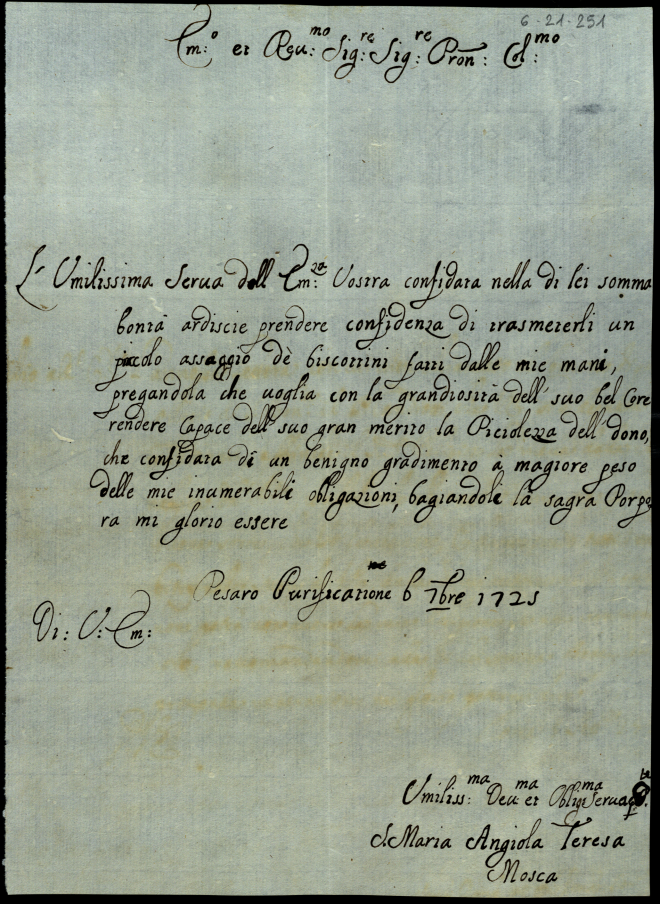 6-21-251
Em:o et Reu:mo Sig:re Sig:re Pron: Col:mo
L' Vmilissima Serua dell Em:za Vostra confidata nella di lei somma
bontà ardiscie prendere confidenza di trasmeterli un
picolo assaggio dè biscottini fatti dalle mie mani,
pregandola che uoglia con la grandiosità dell' suo bel Core
rendere Capace dell' suo gran merito la Piciolezza dell dono,
che confidata di un benigno gradimento à magiore peso
delle mie inumerabili obligazioni, bagiandoli la sagra Porpo
ra mi glorio essere
Pesaro Purificatione 6 7bre 1725
Di: V: Em:
Vmiliss:ma Deu:ma et Oblig:ma Serua
S. Maria Angiola Teresa
Mosca